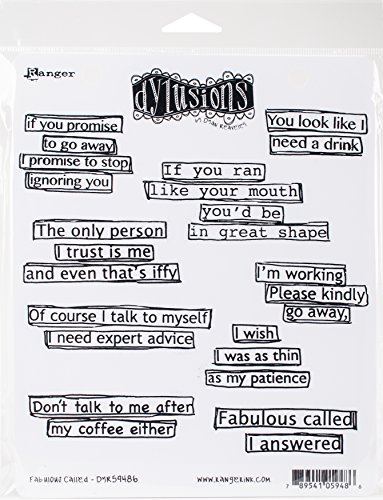 Ranger
dylusions
BY DYAN REAVELEY
if you promise
to go away
I promise to stop
ignoring you
You look like I
need a drink
If you ran
like your mouth
you'd be
in great shape
The only person
I trust is me
and even that's iffy
I'm working
Please kindly
go away,
Of course I talk to myself
I need expert advice
I wish
I was as thin
as my patience
Don't talk to me after
my coffee either
Fabulous called
I answered
FABULOUS CALLED - DYR59486
WWW.RANGERINK.COM
7 89541 05948 6